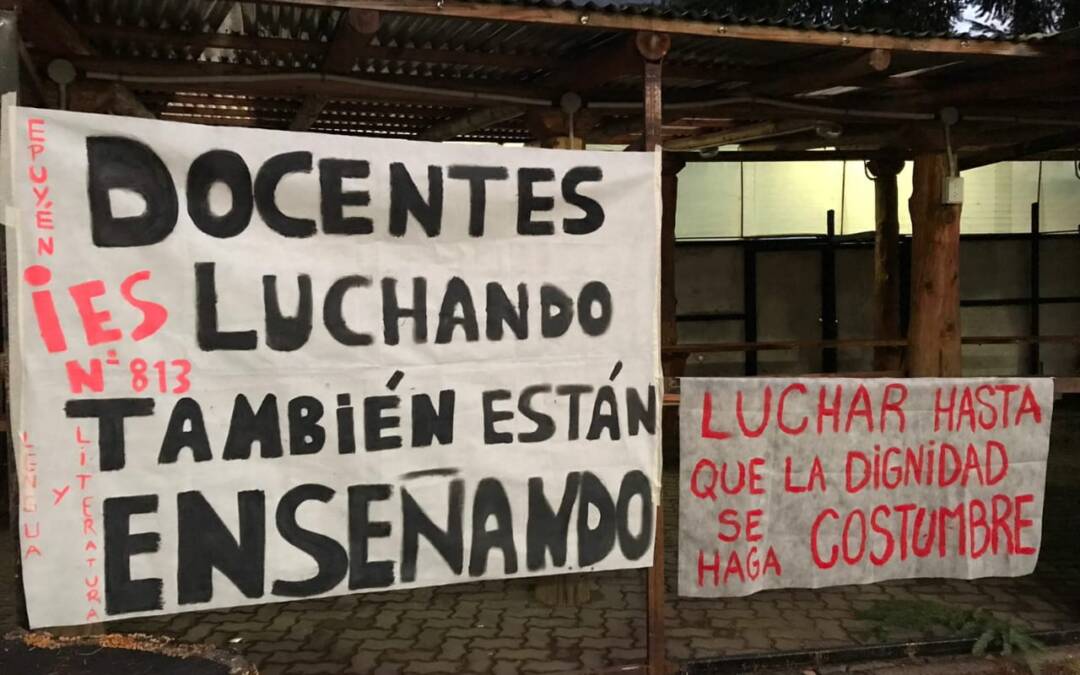 EPUYÉN
iES
N° 813
LENGUA
Y
LiTERATURA
DOCENTES
LUCHANDO
TAMBiÉN ESTÁN
ENSEÑANDO
LUCHAR HASTA
QUE LA DiGNiDAD
SE
HAGA COSTUMBRE